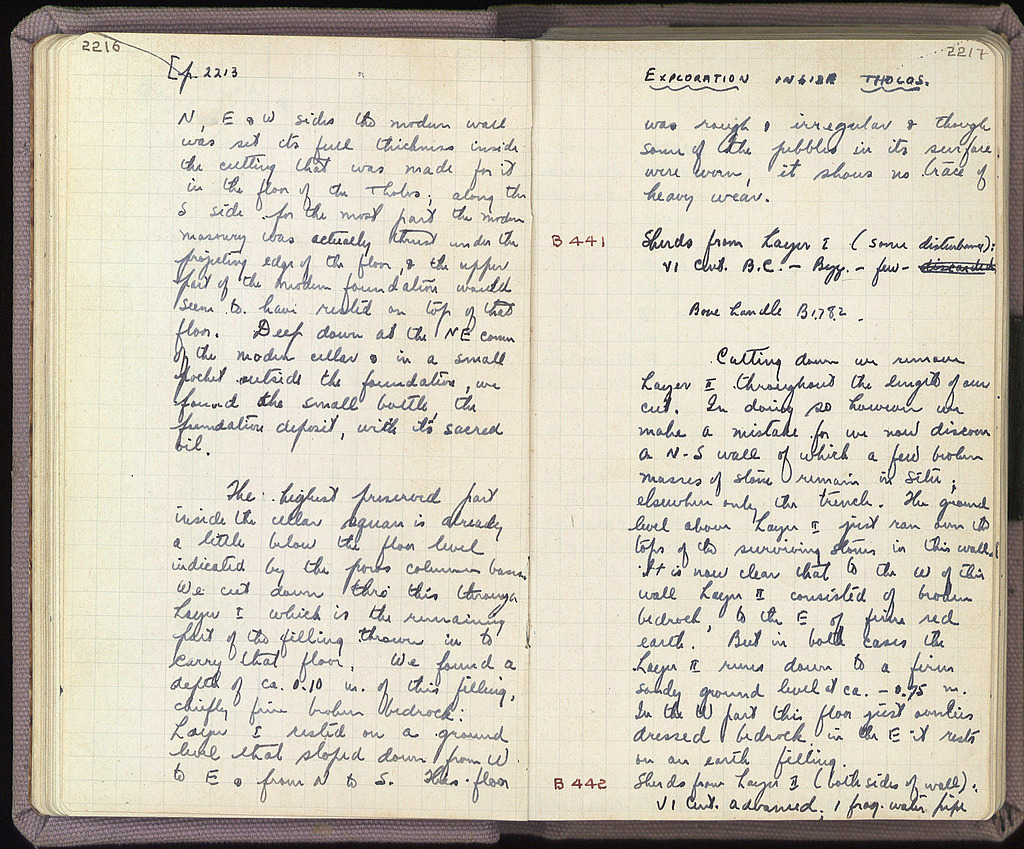 2216
[p. 2213
N, E & W sides the modern wall
was set its full thickness inside
the cutting that was made for it
in the floor of the Tholos; along the
S side for the most part the modern
masonry was actually thrust under the
projecting edge of the floor, & the upper
part of the modern foundation would
seem to have rested on top of that
floor. Deep down at the NE corner
of the modern cellar & in a small
pocket outside the foundation, we
found the small bottle, the
foundation deposit, with its sacred
oil.
The highest preserved part
inside the cellar square is already
a little below the floor level
indicated by the poros column bases
We cut down thro' this through
Layer I which is the remaining
part of the filling thrown in to
carry that floor. We found a
depth of ca. 0.10 m. of this filling,
chiefly fine broken bedrock.
Layer I rested on a ground
level that sloped down from W
to E & from N to S. This floor
2217
EXPLORATION INSIDE THOLOS.
was rough & irregular & though
some of the pebbles in its surface
were worn, it shows no trace of
heavy wear.
B 441 Sherds from Layer I (some disturbance):
VI cent. B.C. - Byz. - few - discarded
Bone handle B1782.
Cutting down we remove
Layer II throughout the length of our
cut. In doing so however we
make a mistake for we now discover
a N-S wall of which a few broken
masses of stone remain in situ;
elsewhere only the trench. The ground
level above Layer II just ran over the
tops of the surviving stones in this wall.
It is now clear that to the W of this
wall Layer II consisted of broken
bedrock, to the E of firm red
earth. But in both cases the
Layer II runs down to a firm
sandy ground level at ca. - 0.75 m.
In the W part this floor just overlies
dressed bedrock, in the E it rests
on an earth filling.
B 442 Sherds from Layer II (both sides of wall):
VI cent. advanced; 1 frag. water pipe